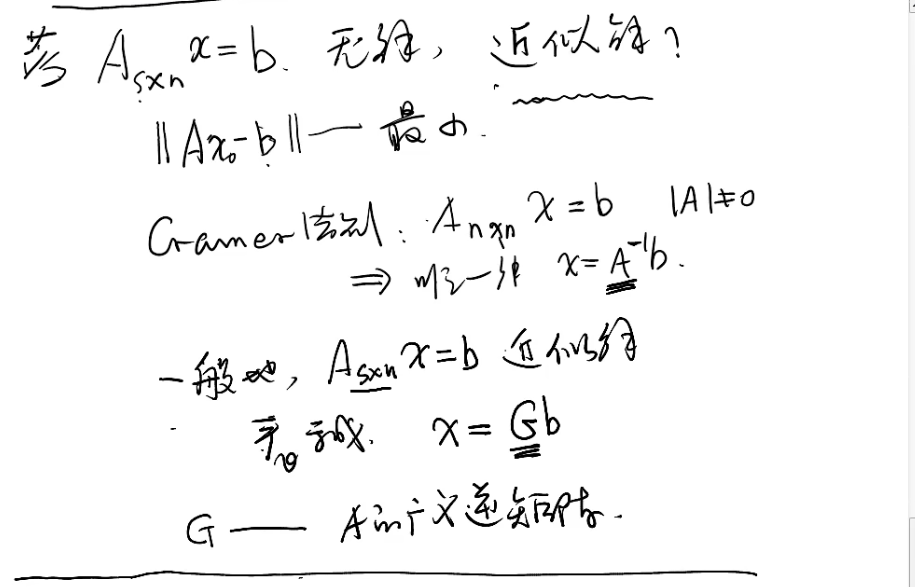 若 A_{s×n} x = b. 无解, 近似解?
‖Ax₀-b‖— 最小.
Cramer法则: A_{n×n} x = b |A|≠0
⇒ 唯一解 x = A⁻¹b.
一般地, A_{s×n} x = b 近似解
x = Gb
G —— A的广义逆矩阵.